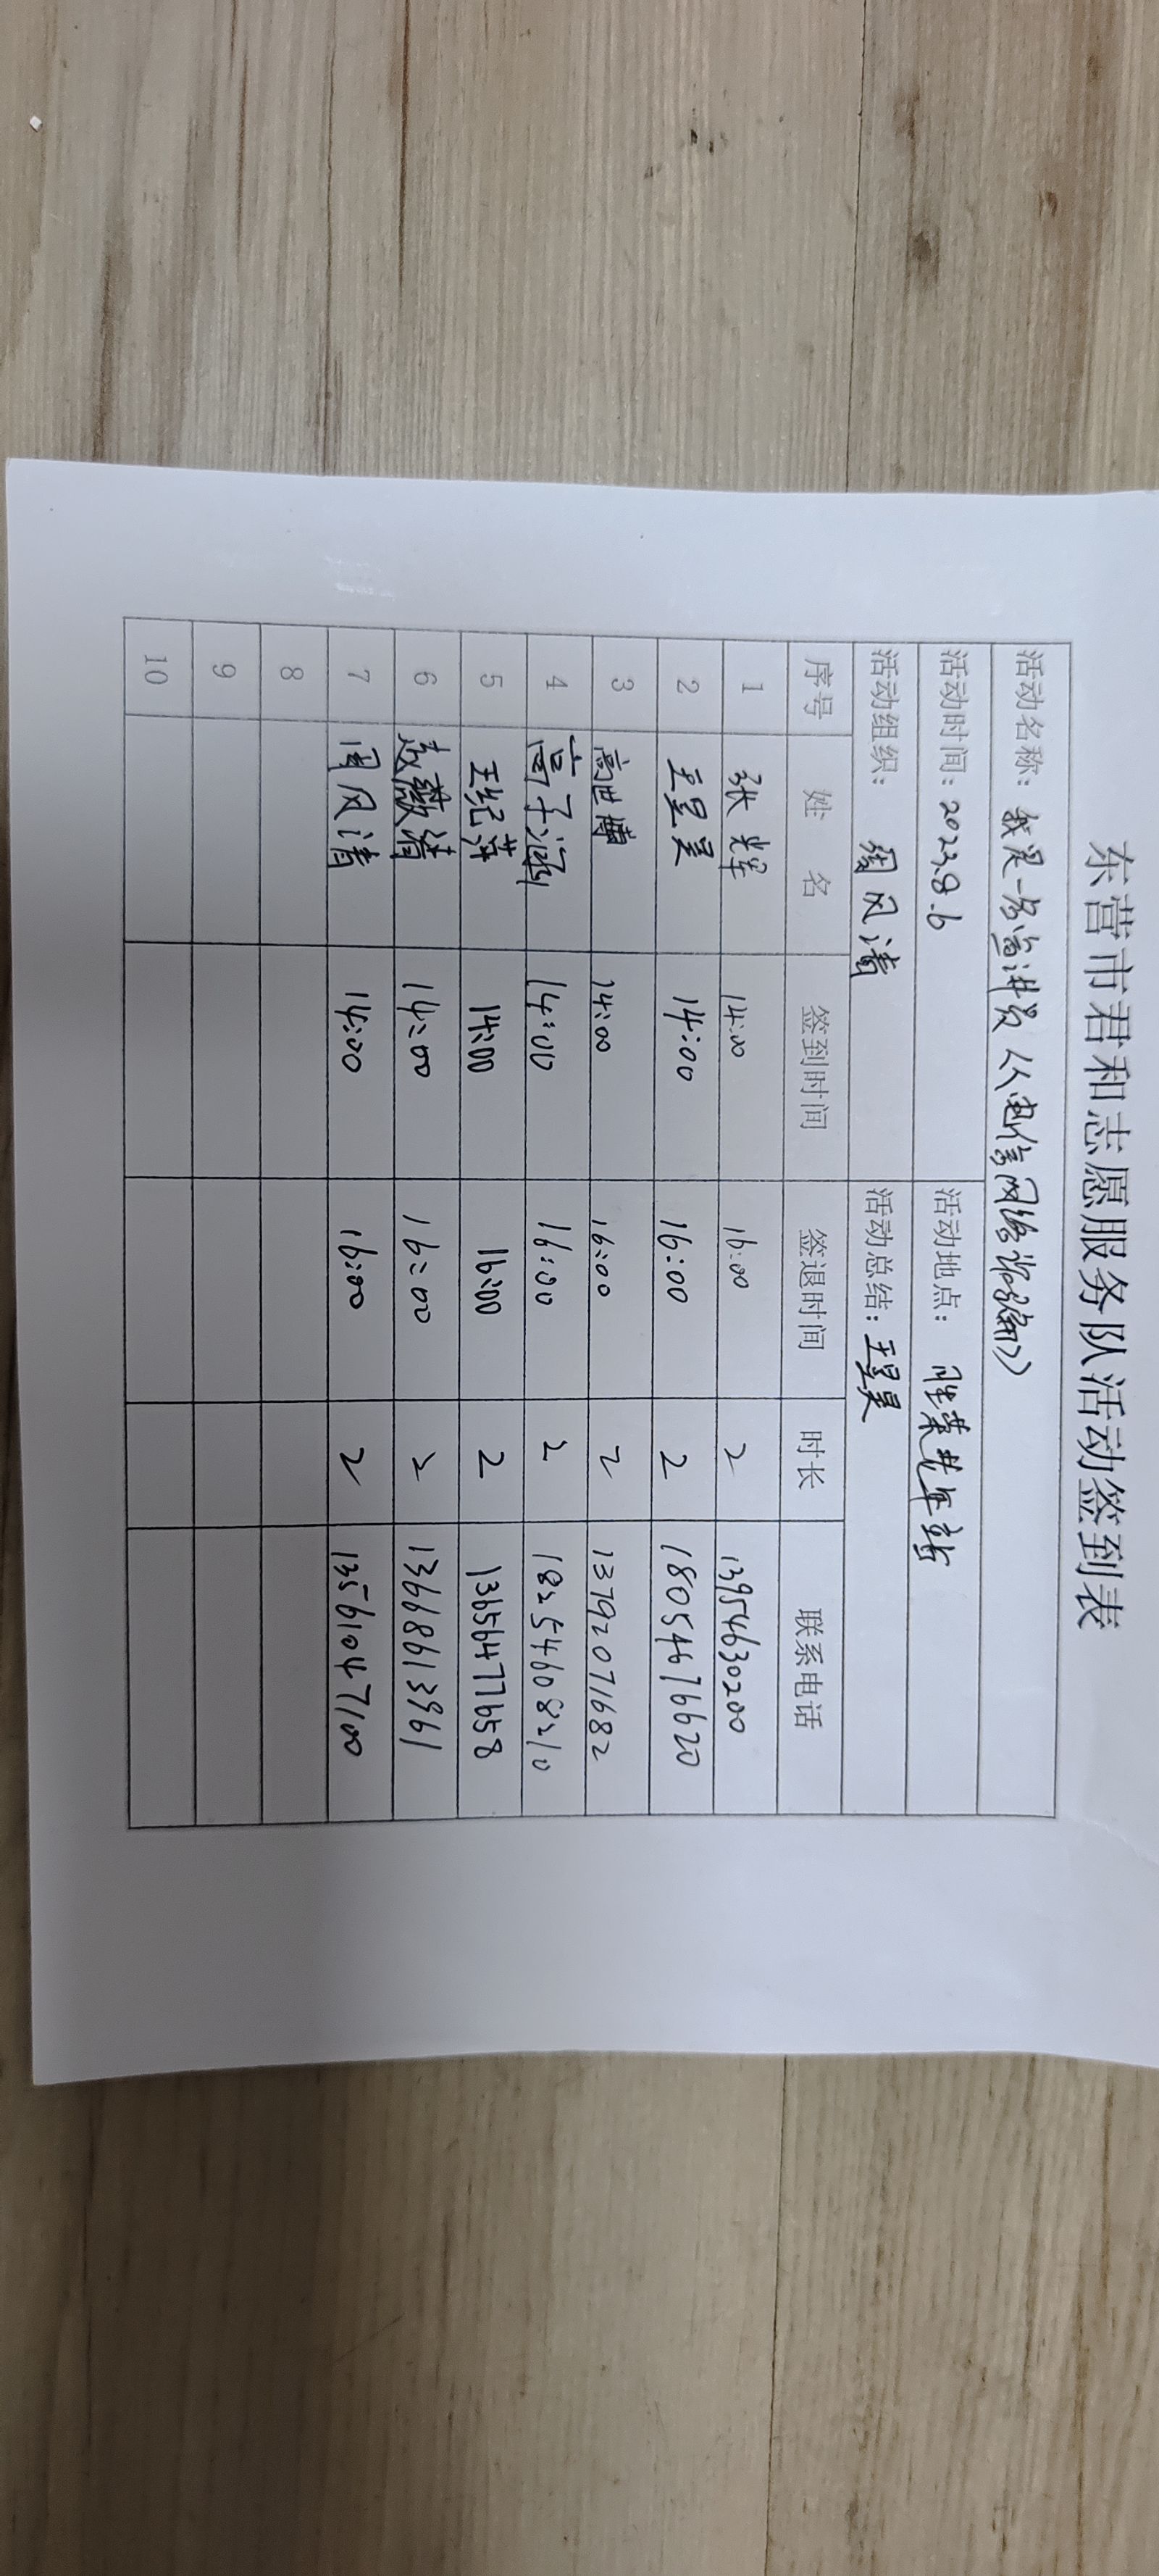 东营市君和志愿服务队活动签到表
活动名称：我是一名宣讲员《电信网络诈骗》
活动时间：2023.8.6 活动地点：胜莱老年站
活动组织：周风清 活动总结：王昱昊
序号 姓 名 签到时间 签退时间 时长 联系电话
1 张辉 14:00 16:00 2 13954630200
2 王昱昊 14:00 16:00 2 18054676620
3 高世博 14:00 16:00 2 13792071682
4 高子涵 14:00 16:00 2 18254608210
5 王纪萍 14:00 16:00 2 13656477658
6 赵薇清 14:00 16:00 2 13668613961
7 周风清 14:00 16:00 2 13561047100
8
9
10